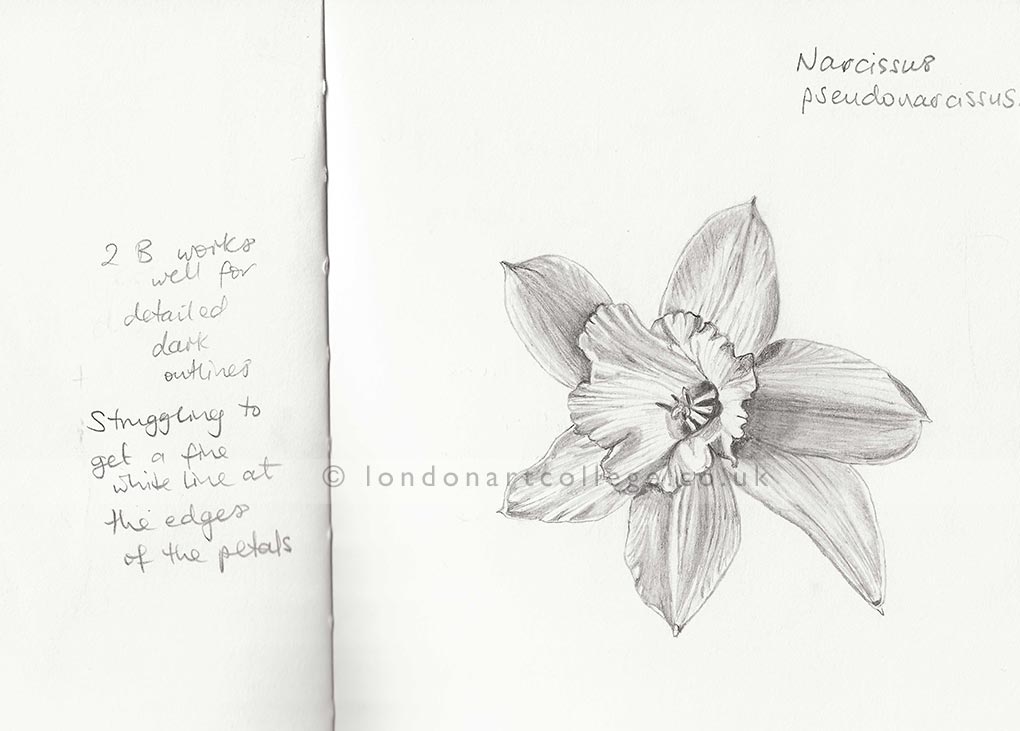 2 B works
well for
detailed
dark
outlines
Struggling to
get a fine
white line at
the edges
of the petals
Narcissus
pseudonarcissus.
© londonartcollege.co.uk